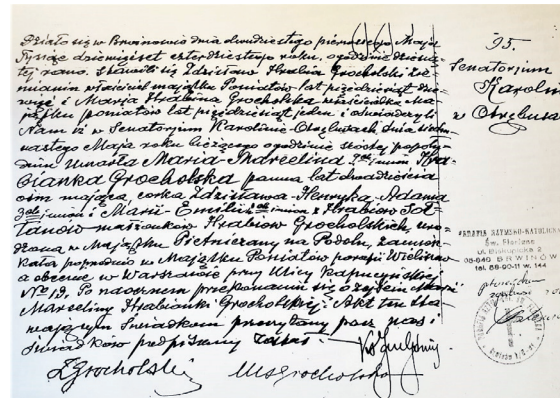 Działo się w Brwinowie dnia dwudziestego pierwszego Maja
Tysiąc dziewięćset czterdziestego roku, o godzinie dziesią-
tej rano. Stawili się Zdzisław Hrabia Grocholski zie-
mianin właściciel majątku Poniatów lat pięćdziesiąt dzie-
więć i Marja Hrabina Grocholska właścicielka Ma-
jątku Poniatów lat pięćdziesiąt jeden i oświadczyli
Nam iż w Senatorjum Karolin-Otrębusach, dnia
nastego Maja roku bieżącego o godzinie szóstej popołu-
dniu umarła Maria-Marcelina 2ga imion Hra-
bianka Grocholska panna lat dwadzieścia
osim mająca, córka Zdzisława-Henryka-Adama
3ch imion i Marii-Emilii 2ga imion z Hrabiów Soł-
tanów małżonków Hrabiów Grocholskich, uro-
dzona w Majątku Pietniczany na Podolu, zamiesz-
kała poprzednio w Majątku Poniatów parafji Wieliszew
a obecnie w Warszawie przy Ulicy Kapucyńskiej
№ 19. Po naocznem przekonaniu się o zejściu Marji
Marceliny Hrabianki Grocholskiej. Akt ten sta-
wającym świadkom przeczytany przez nas i
świadków podpisany został.
ZGrocholski MSGrocholska
95.
Senatorjum
Karolin
z Otrębusa
PARAFIA RZYMSKO-KATOLICKA
Św. Floriana
ul. Biskupicka 2
05-840 BRWINÓW